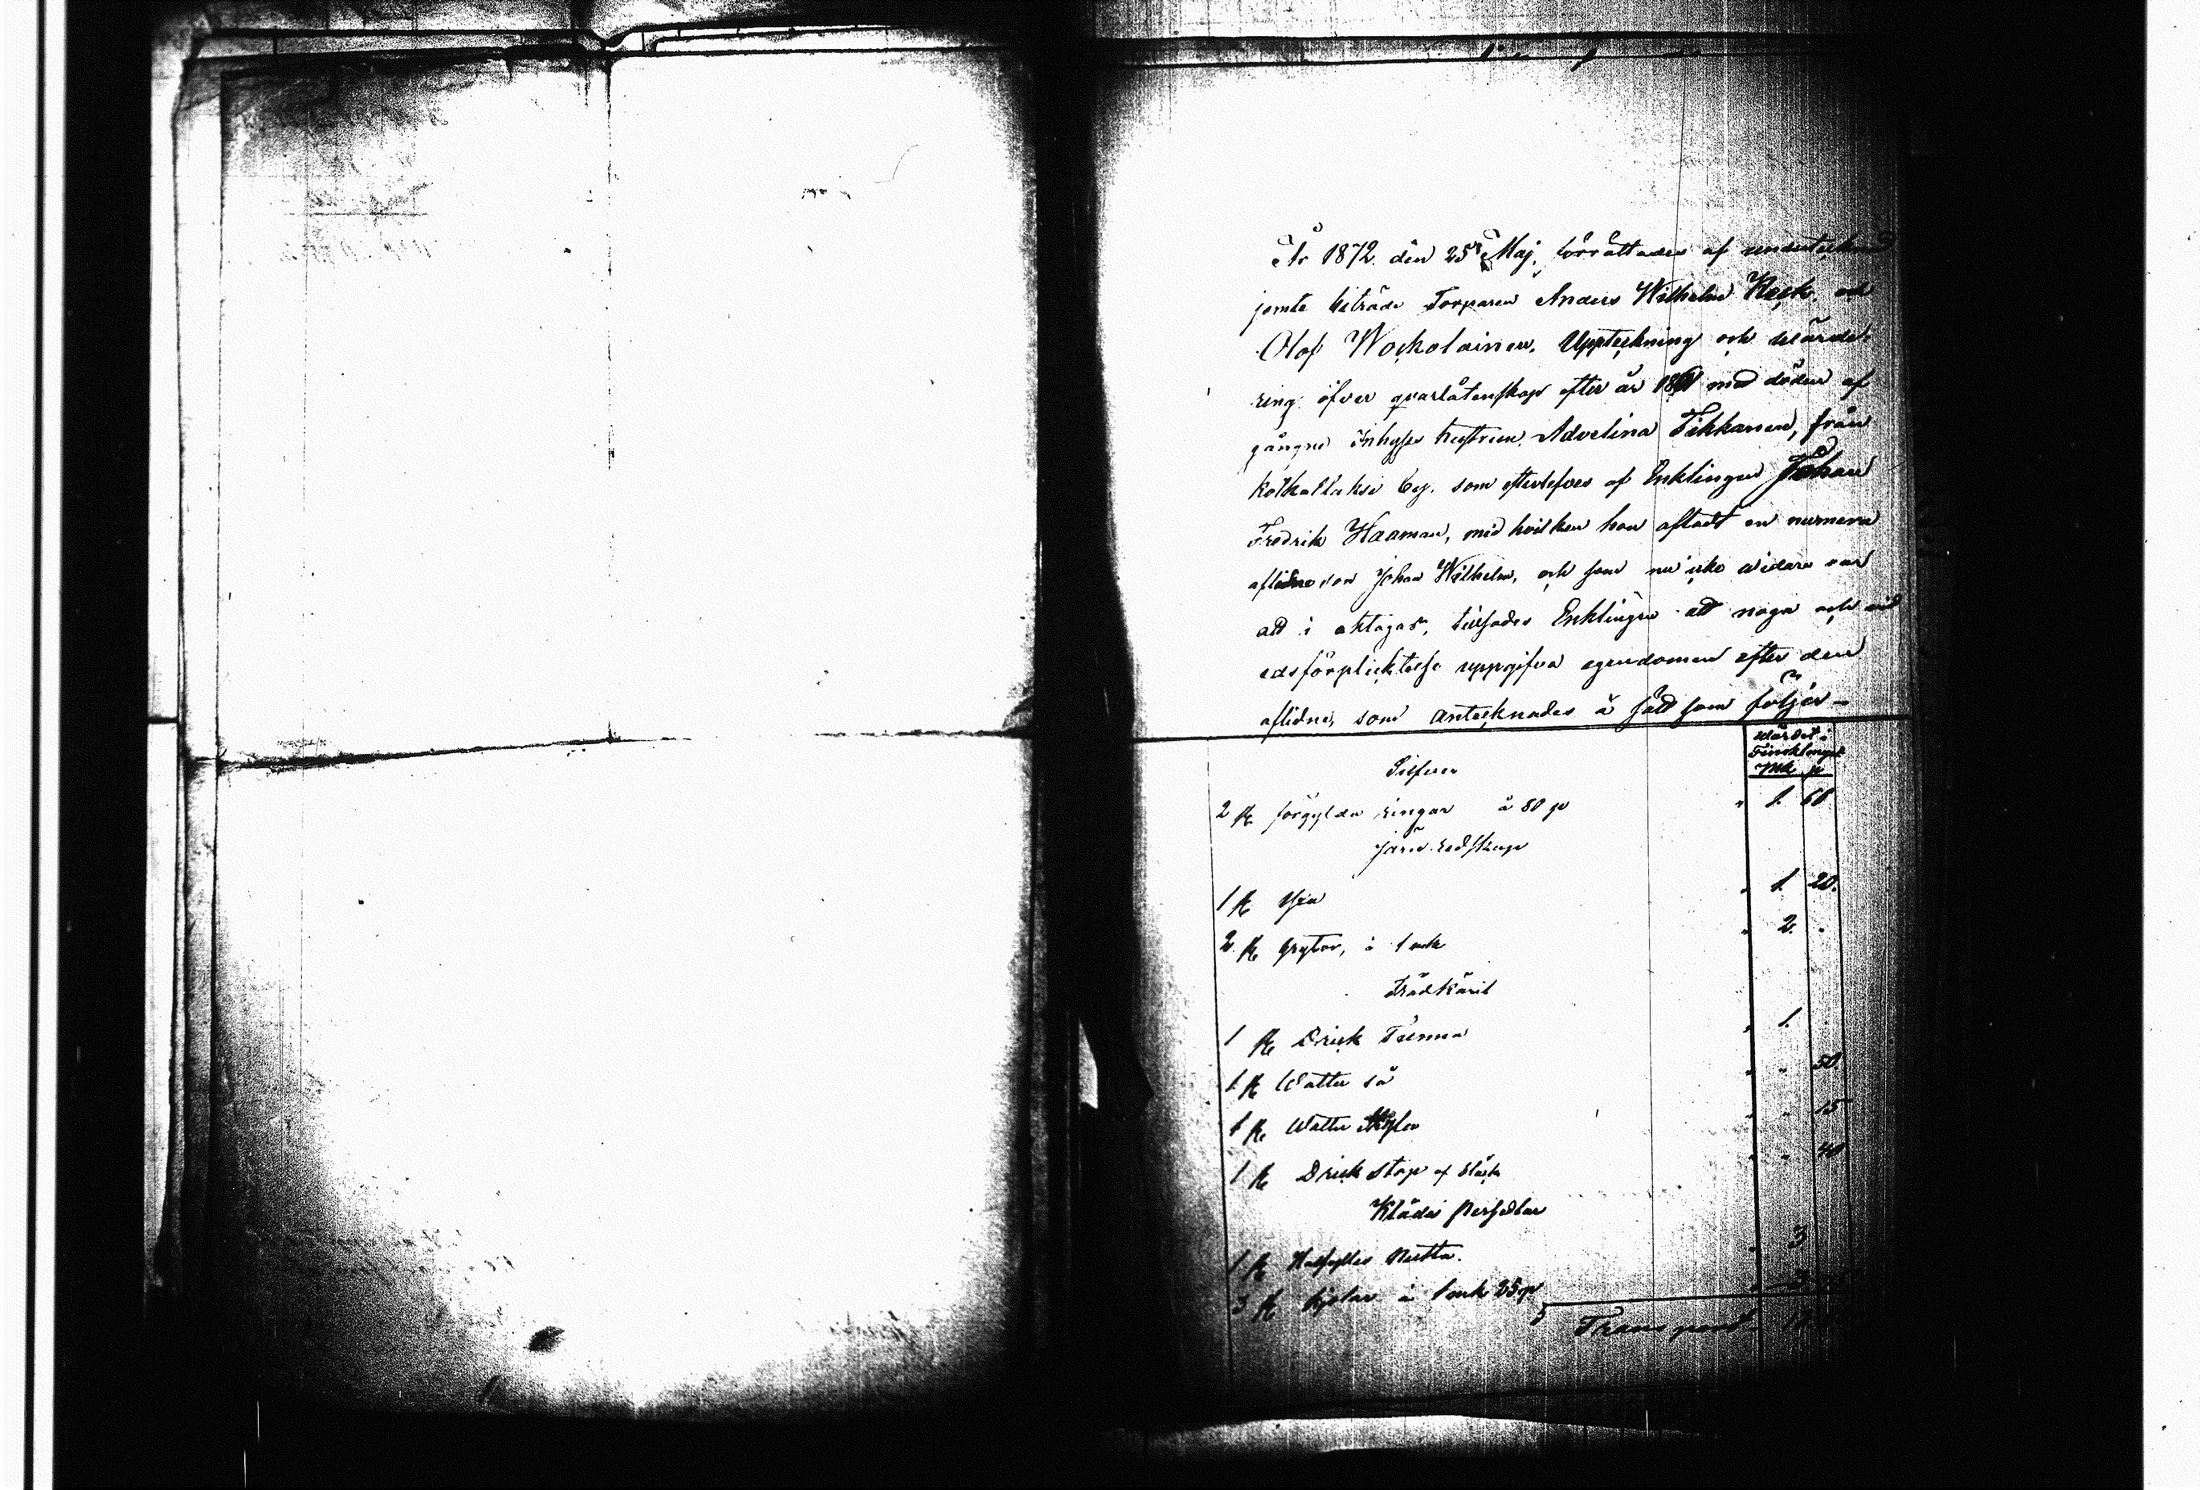 År 1872 den 25te Maj, förrättades af undertecknad
jemte biträde Torparen Anders Wilhelm Keck och
Olof Wockolainen, Uppteckning och wärde-
ring öfver qvarlåtenskap efter år med döden af
gångne Inhyses hustrun Advelina Tikkanen, från
Kolkallaksi by, som efterlefves af Enklingen Johan
Fredrik Haaman, med hvilken hon afladt en numera
aflidne son Johan Wilhelm, och som nu icke widare var
att i akttagas, tillsades Enklingen att noga och vid
edsförplicktelse uppgifva egendomen efter den
aflidne, som antecknades å sätt som följer —
Wärdet i
Finsk mynt
Mk p
Silfver
2 st förgylda ringar à 80 p " 1. 60
Järn redskap
1 st " 1. 20.
2 st Grytor, à 1 mk " 2. "
Trädkäril
1 st Drick Tunna " 1.
1 st Watten så " " 50.
1 st Watten " " 15
1 st Drick stop af bläck " " 40
Kläder Persedlar
1 st Halfylles " 3
3 st Kjolar à 1 mk 25 p " 3
Transport